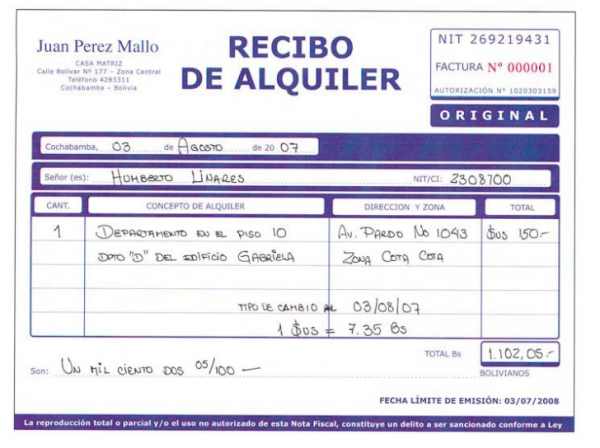 Juan Perez Mallo
CASA MATRIZ
Calle Bolivar Nº 177 - Zona Central
Teléfono 4283311
Cochabamba - Bolivia
RECIBO
DE ALQUILER
NIT 269219431
FACTURA Nº 000001
AUTORIZACIÓN Nº 1020303159
ORIGINAL
Cochabamba, 03 de AGOSTO de 20 07
Señor (es): HUMBERTO LINARES NIT/CI: 2308700
CANT. CONCEPTO DE ALQUILER DIRECCION Y ZONA TOTAL
1 DEPARTAMENTO EN EL PISO 10 AV. PARDO No 1043 $us 150.-
DPTO "D" DEL EDIFICIO GABRIELA ZONA COTA COTA
TIPO DE CAMBIO AL 03/08/07
1 $us = 7.35 Bs
TOTAL Bs 1.102,05.-
Son: UN MIL CIENTO DOS 05/100 — BOLIVIANOS
FECHA LÍMITE DE EMISIÓN: 03/07/2008
La reproducción total o parcial y/o el uso no autorizado de esta Nota Fiscal, constituye un delito a ser sancionado conforme a Ley